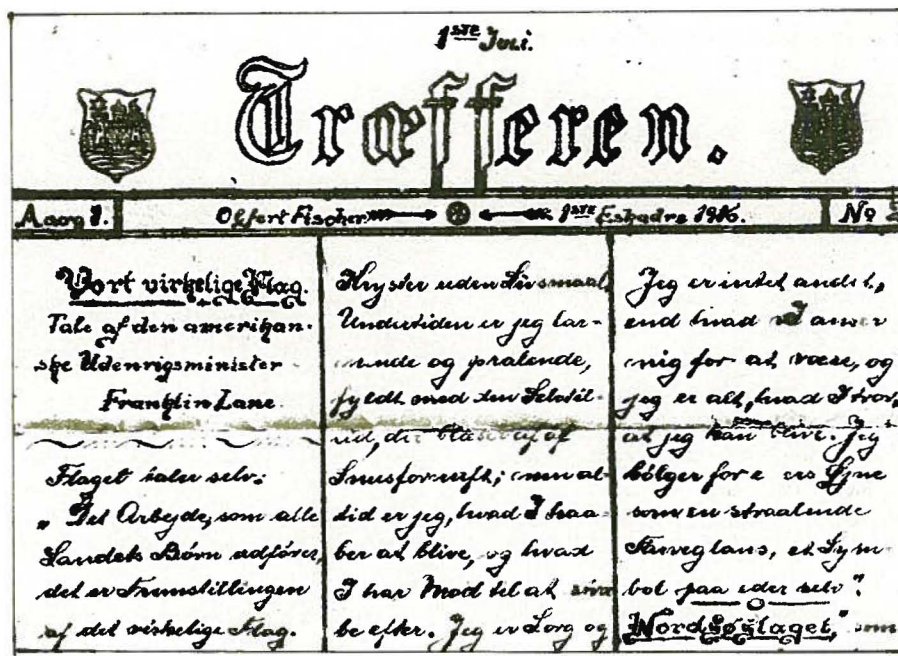 1ste Juli.
Træfferen.
Aarg 1.
Olfert Fischer
1ste Eskadre 1916.
No
Vort virkelige Flag.
Tale af den amerikan-
ske Udenrigsminister
Franklin Lane.
Flaget taler selv:
„Det Arbejde, som alle
Landets Børn udfører,
det er Fremstillingen
af det virkelige Flag.
Kryster uden Livsmaal,
Undertiden er jeg lar-
mende og pralende,
fyldt med den Selvtil-
lid, der
Snusfornuft; men al-
tid er jeg, hvad I haa-
ber at blive, og hvad
I har Mod til at
be efter. Jeg er Sorg og
Jeg er intet andet,
end hvad I anser
mig for at være, og
jeg er alt, hvad I tror,
at jeg kan blive. Jeg
bølger for eders Øjne
som en straalende
Farveglans, et Sym
bol paa eder selv".
"Nordsøflaget," som